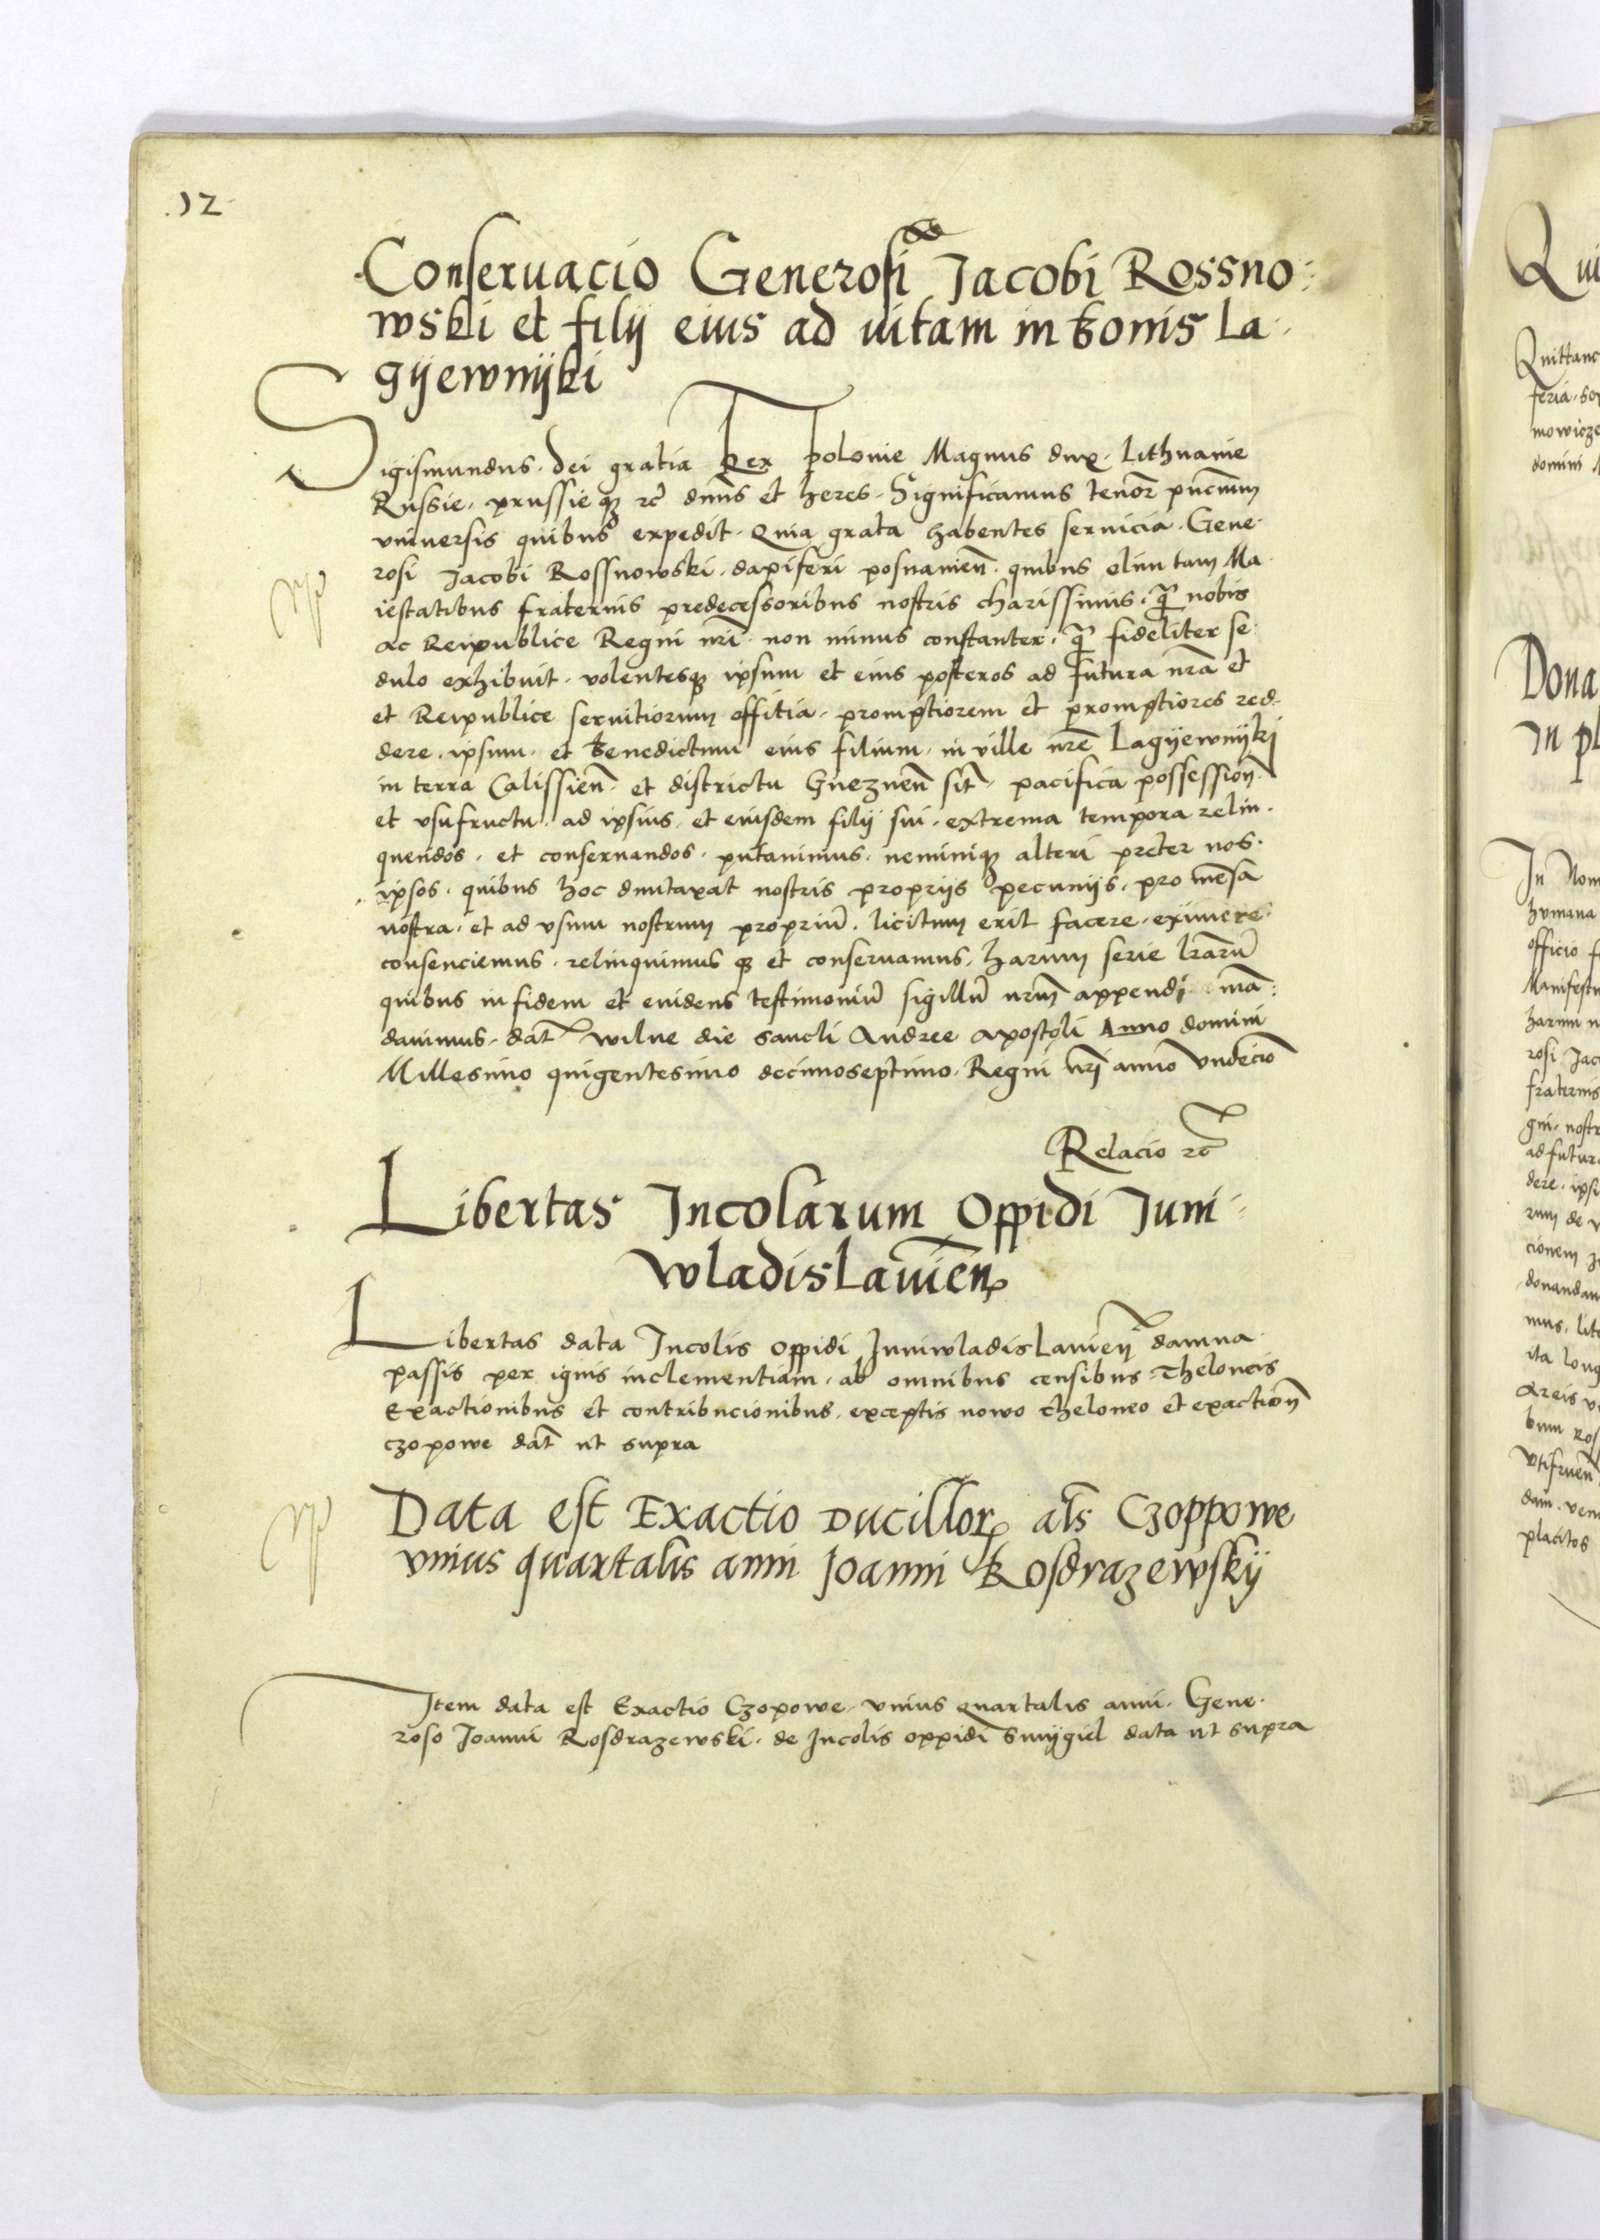 .12.
Conseruacio Generosi Jacobi Rossno-
wski et filij eius ad uitam in bonis La-
gijewnijki
Sigismundus . Dei gratia Rex Polonie Magnus dux . Lithuanie
Russie . prussie qʒ rc̄ dnn̄s et heres . Significamus tenor̄ pn̄cium
vniuersis quibus expedit . Quia grata habentes seruicia . Gene-
rosi Jacobi Rossnowski . dapiferi posnanien̄ . quibus olim tam Ma-
iestatibus fraternis predecessoribus nostris charissimis . q̄ nobis
ac Reipublice Regni nr̄i . non minus constanter . q̄ fideliter se-
dulo exhibuit . volentesqʒ ipsum et eius posteros ad futura nr̄a et
et Reipublice seruitiorum offitia . promptiorem et promptiores red-
dere . ipsum . et Benedictum eius filium . in ville nr̄e Lagijewnijki
in terra Calissien̄ . et districtu Gneznen̄ sit̄ . pacifica possession̄
et vsufructu . ad ipsius . et eiusdem filij sui . extrema tempora relin-
quendos . et conseruandos . putauimus . neminiqʒ alteri preter nos .
ipsos . quibus hoc dumtaxat nostris proprijs pecunijs . pro men̄sa
nostra . et ad vsum nostrum propriū . licitum erit facere . eximere
consenciemus . relinquimus qʒ et conseruamus . harum serie lr̄arū
quibus in fidem et euidens testimoniū sigillū nrm̄ appendi mā-
dauimus . dat̄ Wilne die sancti Andree apostoli Anno domini
Millesimo quigentesimo decimoseptimo . Regni nr̄i anno Vndecīo
Relacio rc̄
Libertas Incolarum Oppidi Iuni-
wladislauien̄
Libertas data Incolis oppidi Iuniwladislauien̄ damna
passis per ignis inclementiam . ab omnibus censibus . Theloneis
Exactionibus et contribucionibus . exceptis nowo theloneo et exaction̄
czopowe dat̄ ut supra
Data est Exactio Ducillor als̄ Czoppowe
vnius quartalis anni Joanni Rosdrazewskij
Item data est Exactio Czopowe . vnius quartalis anni . Gene-
roso Joanni Rosdrazewski . de Incolis oppidi Smijgiel data ut supra
Qui
Quittanc
feria . sex
mowicze
domini
Dona
In pl
In Nom
humana
officio
Manifestu
harum n
rosi Jac
fraternis
gni . nostr
ad futur
dere . ipsu
rum de v
cionem
donandam
mus . lit
ita long
Areis v
bum Ros
vtifruen̄
dam . ven
placitos